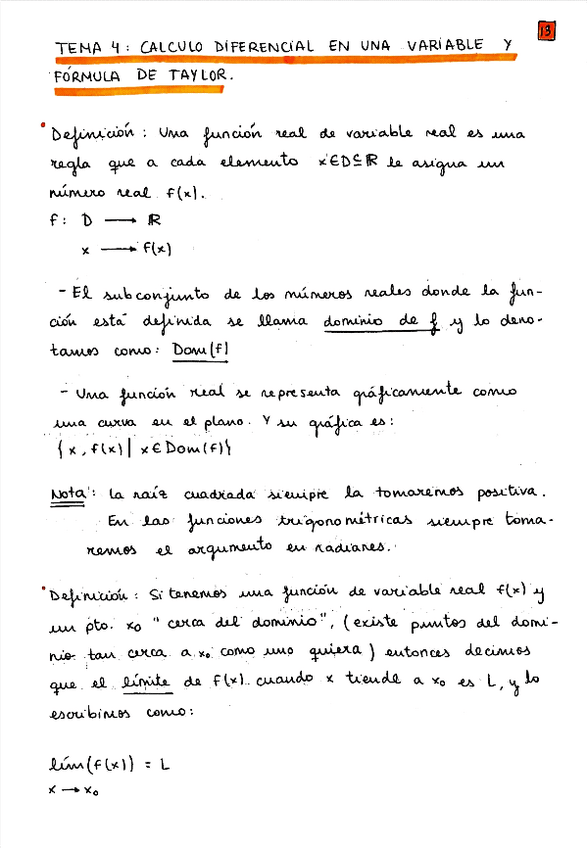 19
TEMA 4: CALCULO DIFERENCIAL EN UNA VARIABLE Y
FÓRMULA DE TAYLOR.
Definición: Una función real de variable real es una
regla que a cada elemento x∈D⊆ℝ le asigna un
número real f(x).
f: D → ℝ
x → f(x)
- El subconjunto de los números reales donde la fun-
ción está definida se llama dominio de f y lo deno-
tamos como: Dom(f)
- Una función real se representa gráficamente como
una curva en el plano. Y su gráfica es:
{x, f(x) | x∈Dom(f)}
Nota: la raíz cuadrada siempre la tomaremos positiva.
En las funciones trigonométricas siempre toma-
remos el argumento en radianes.
Definición: Si tenemos una función de variable real f(x) y
un pto. x₀ "cerca del dominio", (existe puntos del domi-
nio tan cerca a x₀ como uno quiera) entonces decimos
que el límite de f(x) cuando x tiende a x₀ es L, y lo
escribimos como:
lím(f(x)) = L
x → x₀